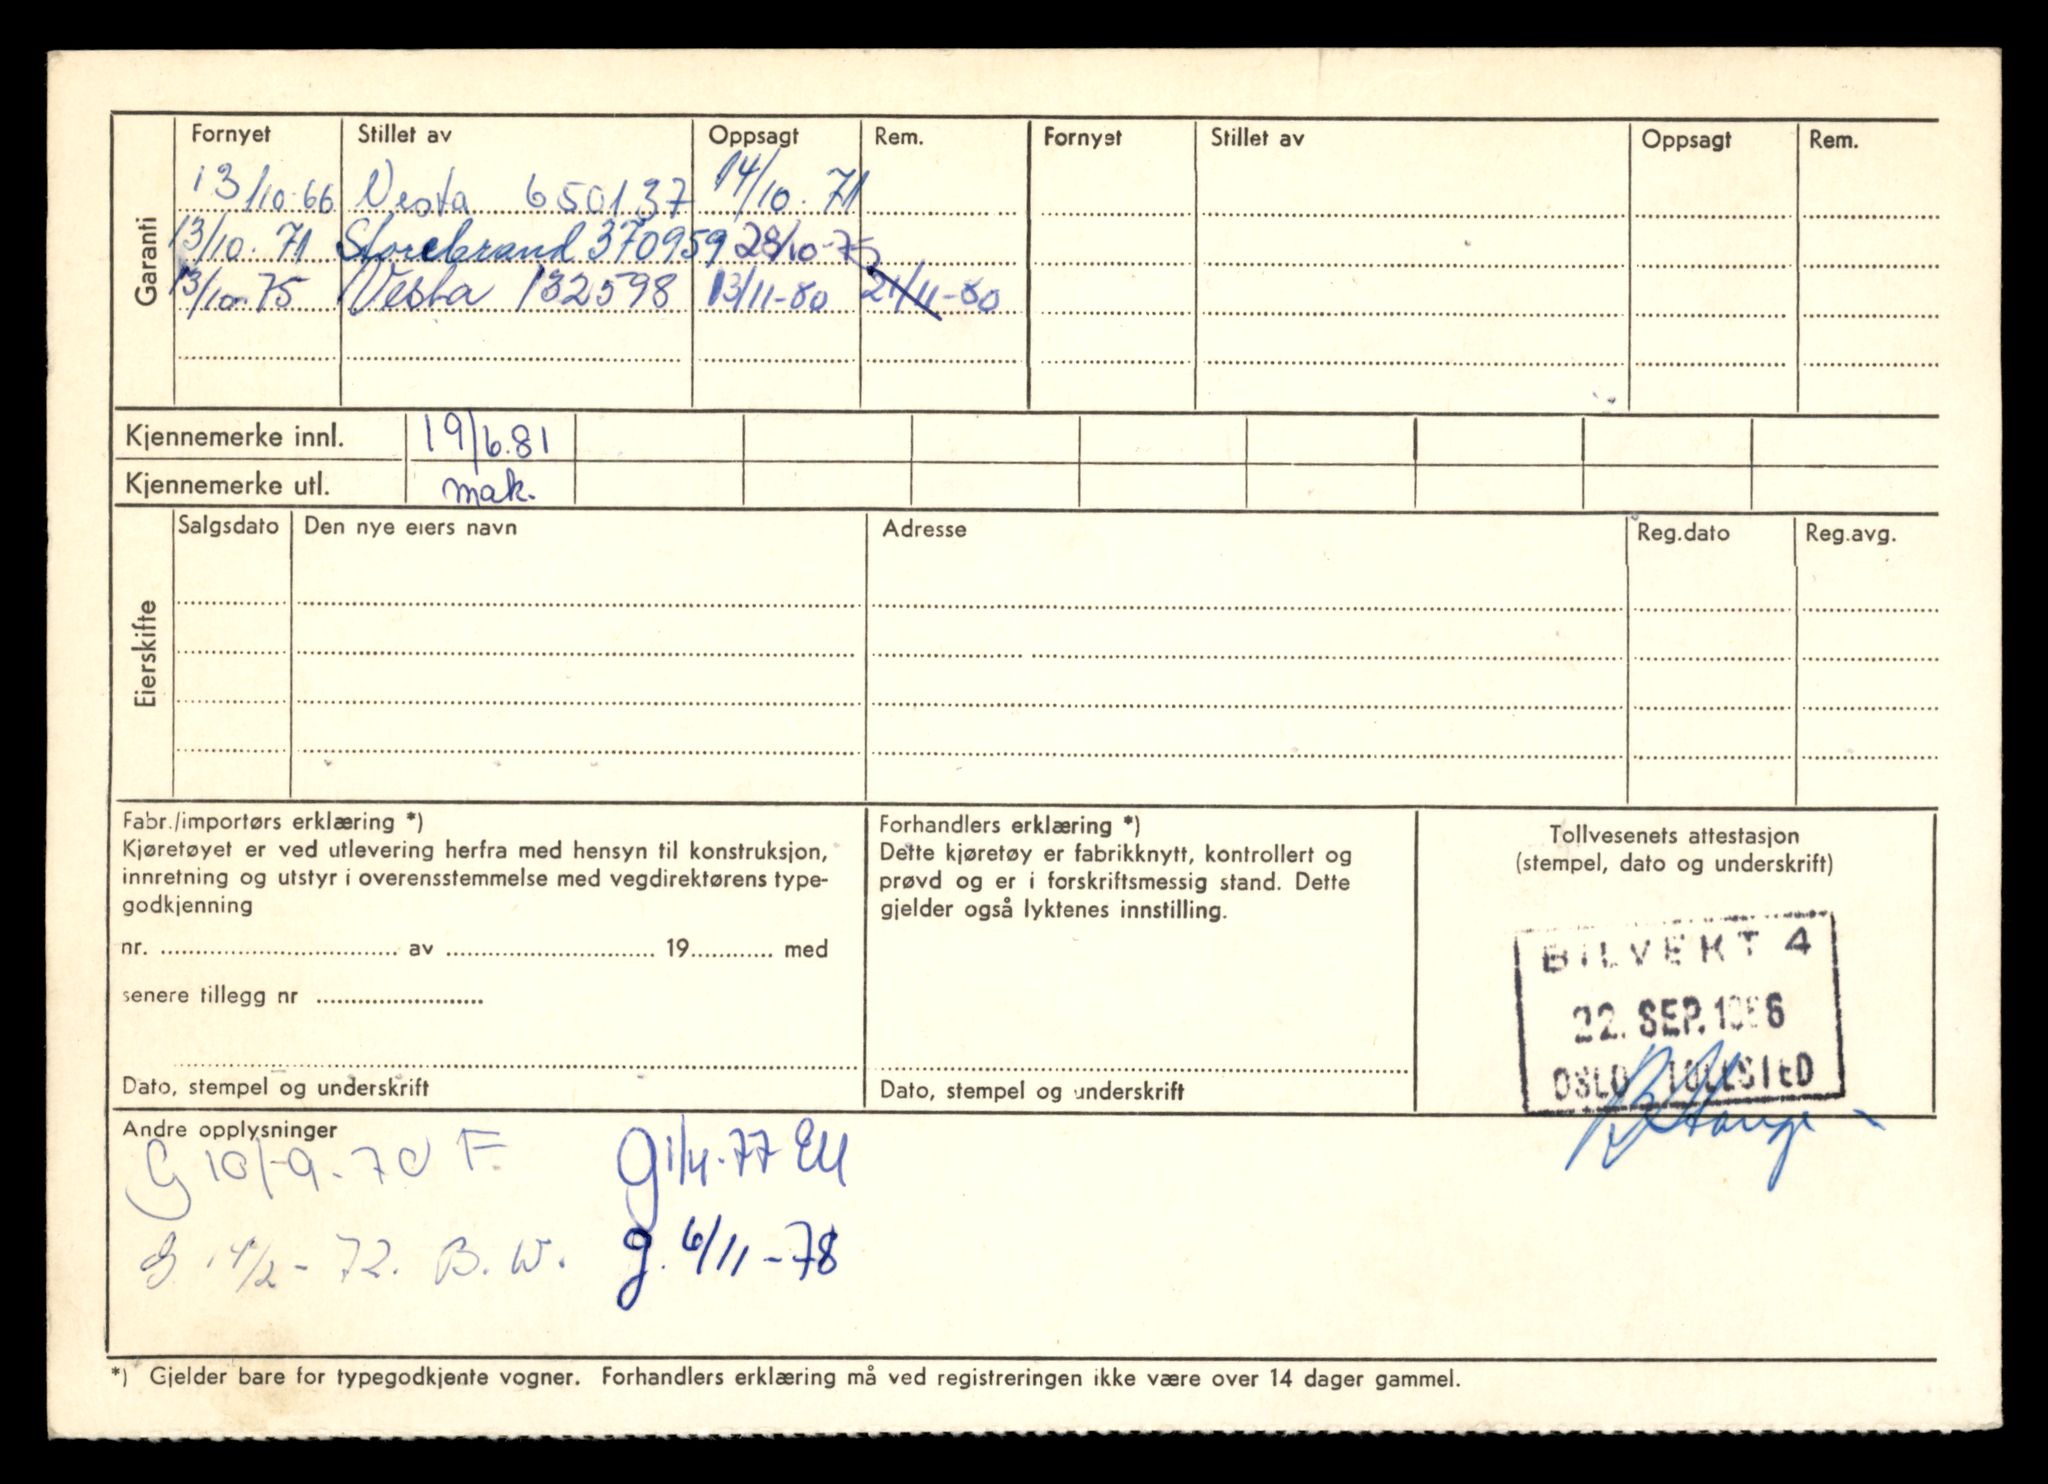 Garanti
Fornyet Stillet av Oppsagt Rem. Fornyet Stillet av Oppsagt Rem.
13/10-66 Vesta 650137 14/10-71
13/10-71 Storebrand 370959 28/10-75
13/10-75 Vesta 132598 13/11-80 21/11-80
Kjennemerke innl. 19/6.81
Kjennemerke utl. mak.
Eierskifte
Salgsdato Den nye eiers navn Adresse Reg.dato Reg.avg.
Fabr./importørs erklæring *)
Kjøretøyet er ved utlevering herfra med hensyn til konstruksjon,
innretning og utstyr i overensstemmelse med vegdirektørens type-
godkjenning
nr. av 19 med
senere tillegg nr
Dato, stempel og underskrift
Forhandlers erklæring *)
Dette kjøretøy er fabrikknytt, kontrollert og
prøvd og er i forskriftsmessig stand. Dette
gjelder også lyktenes innstilling.
Dato, stempel og underskrift
Tollvesenets attestasjon
(stempel, dato og underskrift)
BILVEKT 4
22. SEP. 1966
OSLO TOLLSTED
Andre opplysninger
G 10/-9-70 F. G 1/4-77 EM
g. 14/2-72. B.W. g. 6/11-78
*) Gjelder bare for typegodkjente vogner. Forhandlers erklæring må ved registreringen ikke være over 14 dager gammel.